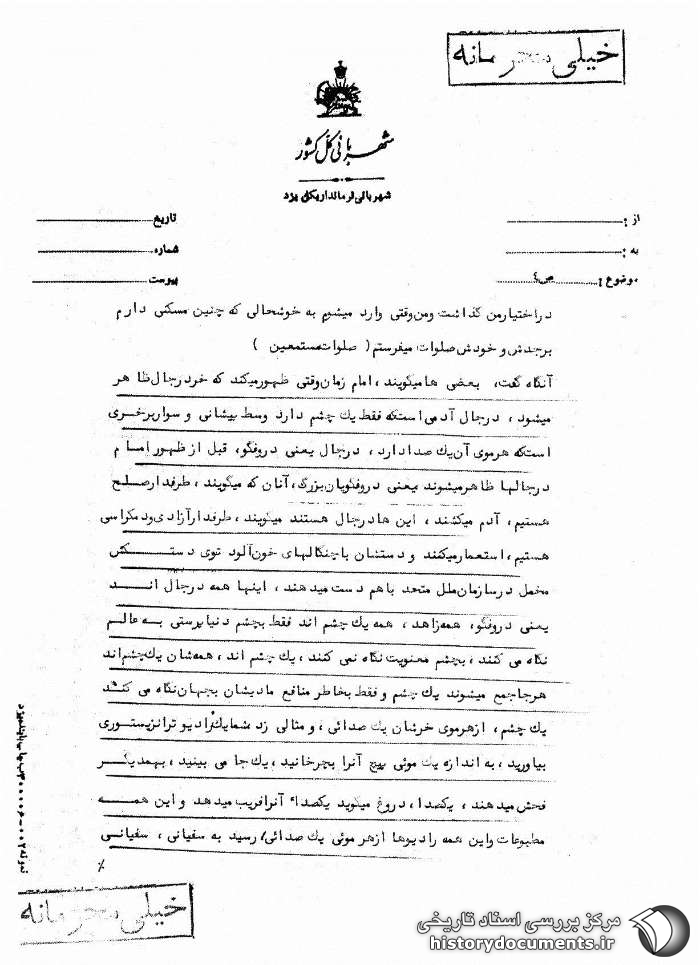 خیلی محرمانه
شهربانی کل کشور
شهربانی فرمانداریکل یزد
از :
تاریخ
به :
شماره
موضوع :
ص ٤
پیوست
در اختیار من گذاشت و من وقتی وارد میشوم به خوشحالی که چنین مسکنی دارم
بر جدش و خودش صلوات میفرستم ( صلوات مستمعین )
آنگاه گفت، بعضی ها میگویند ، امام زمان وقتی ظهور میکند که خر درجال ظاهر
میشود ، درجال آدمی است که فقط یك چشم دارد وسط پیشانی و سوار بر خری
است که هر موی آن یك صدا دارد ، درجال یعنی دروغگو، قبل از ظهور امام
درجالها ظاهر میشوند یعنی دروغگویان بزرگ، آنان که میگویند ، طرفدار صلح
هستیم ، آدم میکشند ، این ها درجال هستند میگویند ، طرفدار آزادی و دمکراسی
هستیم ، استعمار میکنند و دستشان با چنگالهای خون آلود توی دستکش
مخمل در سازمان ملل متحد باهم دست میدهند ، اینها همه درجال اند
یعنی دروغگو، همه زاهد ، همه یك چشم اند فقط بچشم دنیا پرستی به عالم
نگاه می کنند ، بچشم معنویت نگاه نمی کنند ، یك چشم اند ، همه شان یك چشم اند
هر جا جمع میشوند یك چشم و فقط بخاطر منافع مادیشان بجهان نگاه می کنند
یك چشم ، از هر موی خرشان یك صدائی ، و مثالی زد شما یك رادیو ترانزیستوری
بیاورید ، به اندازه یك موئی پیچ آنرا بچرخانید ، یك جا می بینید ، بهمدیگر
فحش میدهند ، یکصدا ، دروغ میگوید یکصدا آنرا فریب میدهد و این همه
مطبوعات و این همه رادیوها از هر موئی یك صدائی / رسید به سفیانی ، سفیانی
خیلی محرمانه
مرکز بررسی اسناد تاریخی
historydocuments.ir